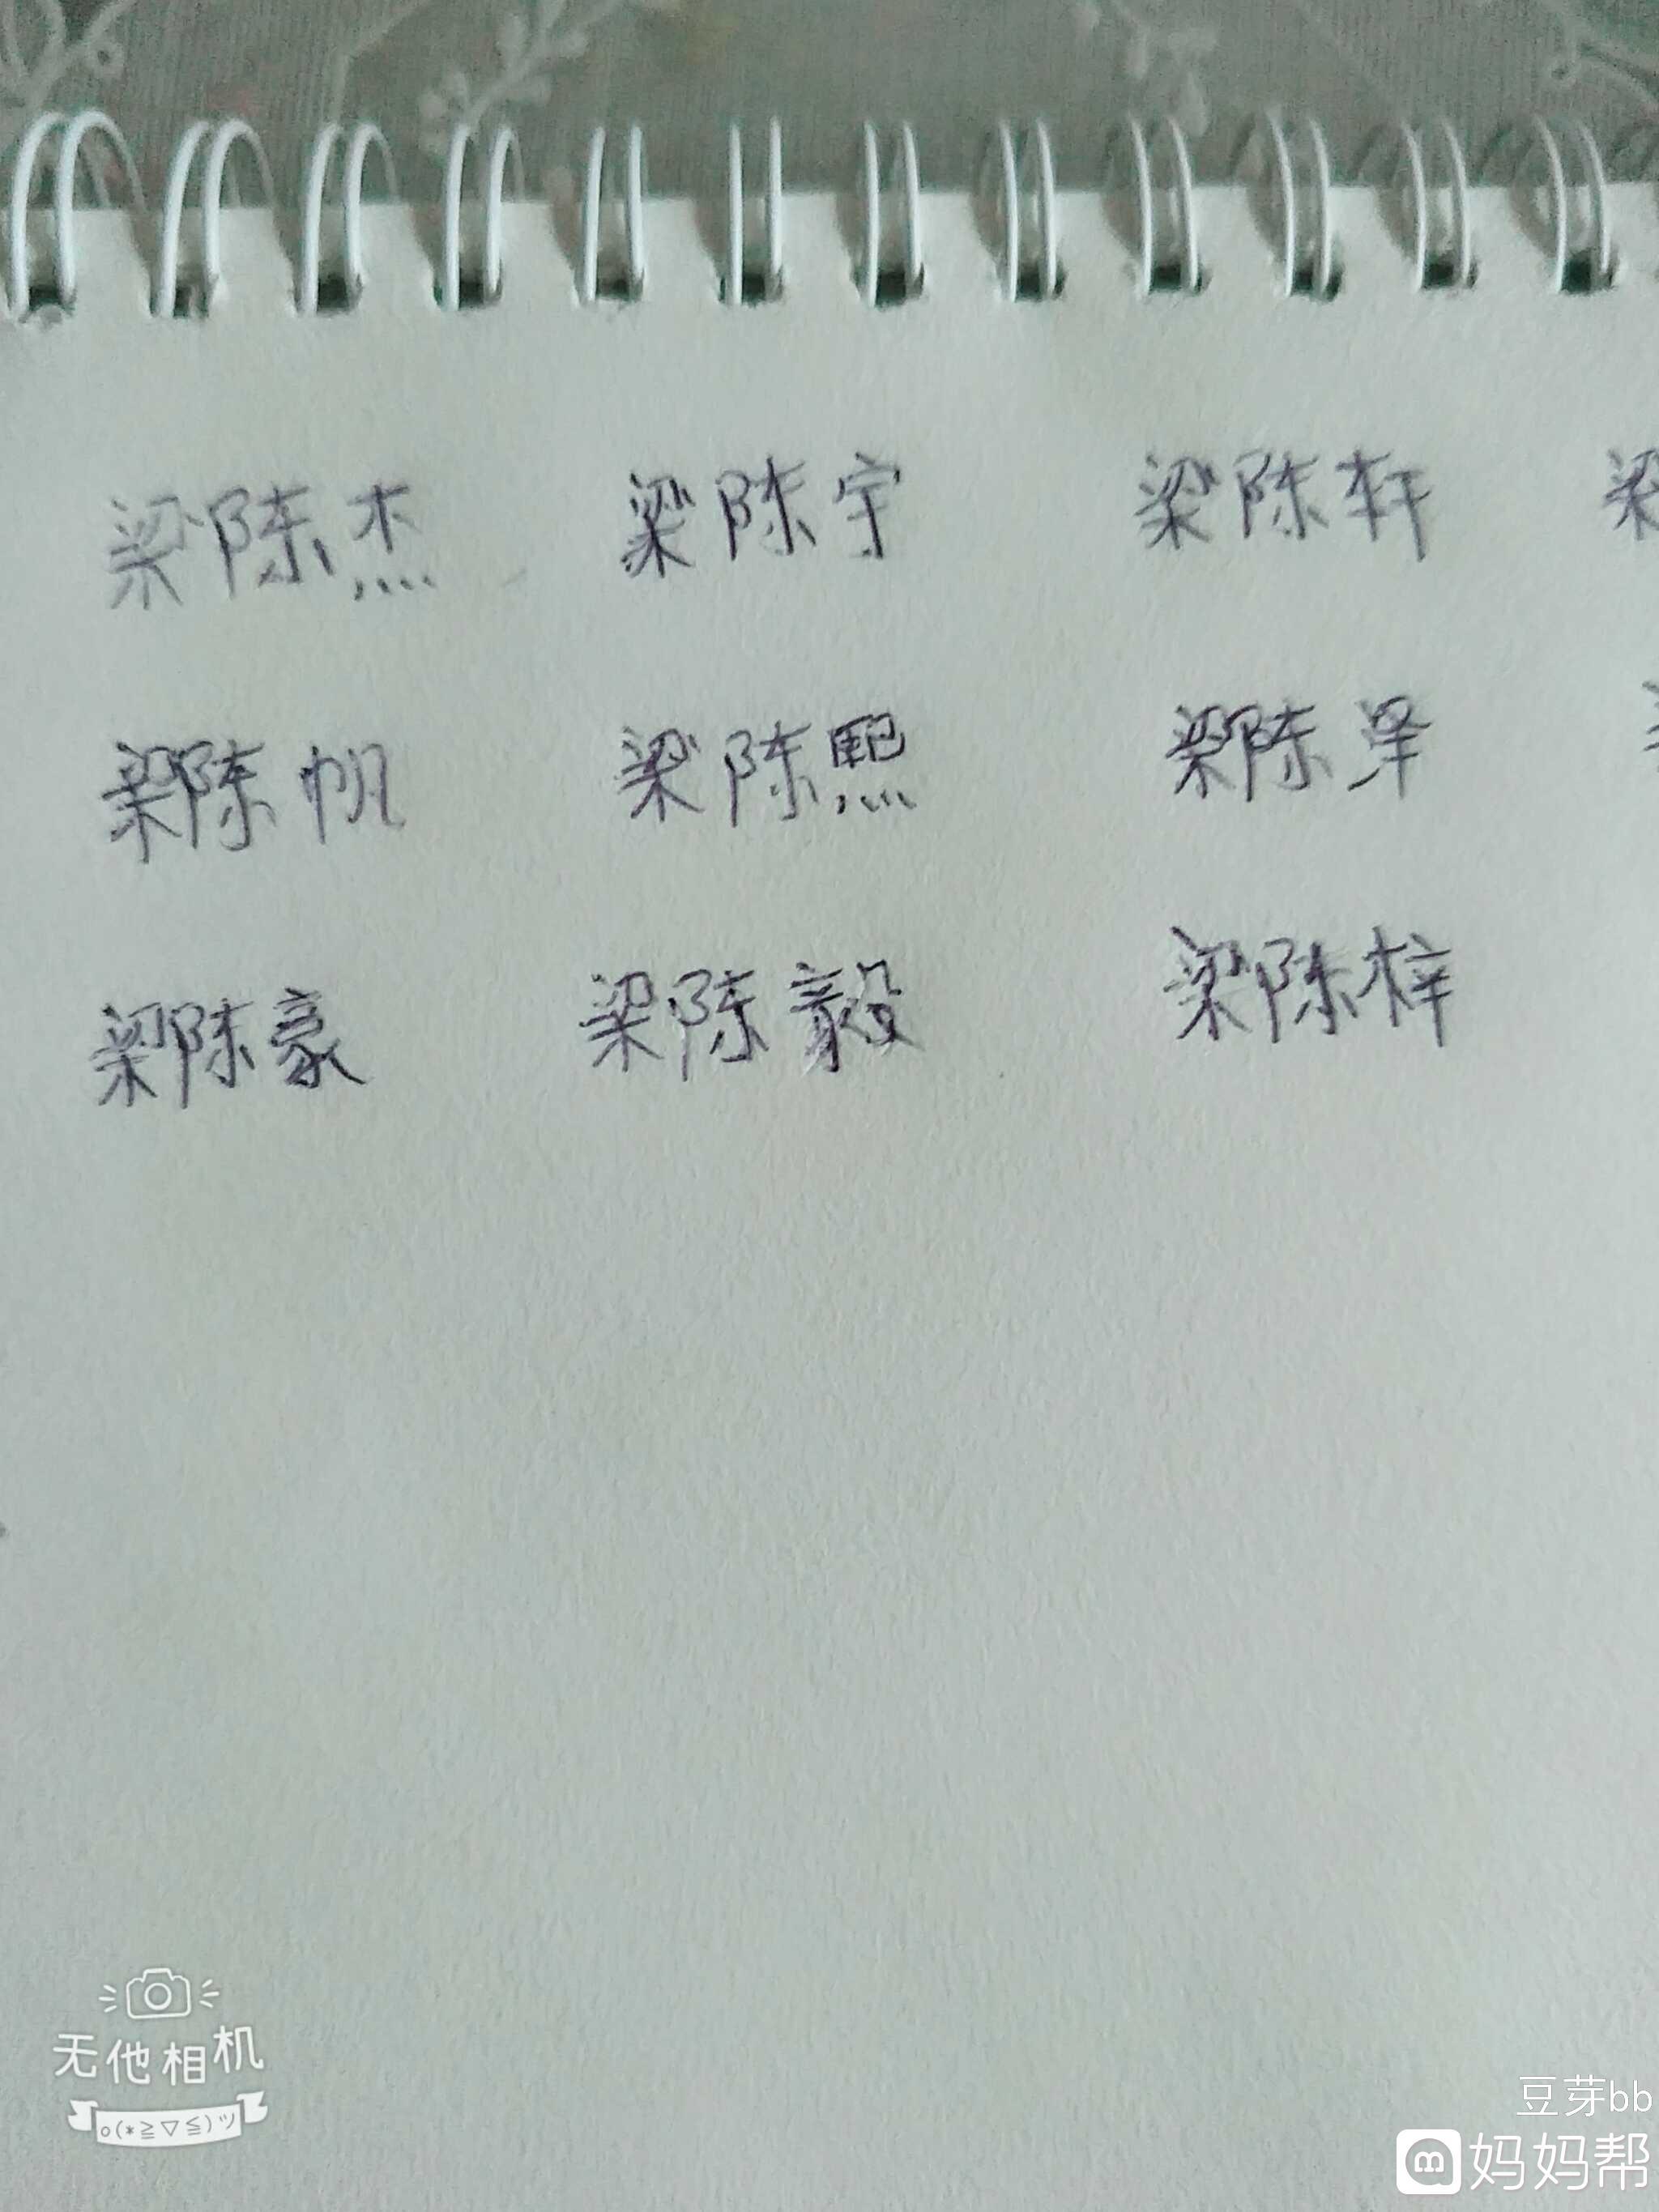 梁陈杰 梁陈宇 梁陈轩 梁
梁陈帆 梁陈熙 梁陈泽
梁陈豪 梁陈毅 梁陈梓
无他相机
o(*≧▽≦)ツ
豆芽bb
妈妈帮